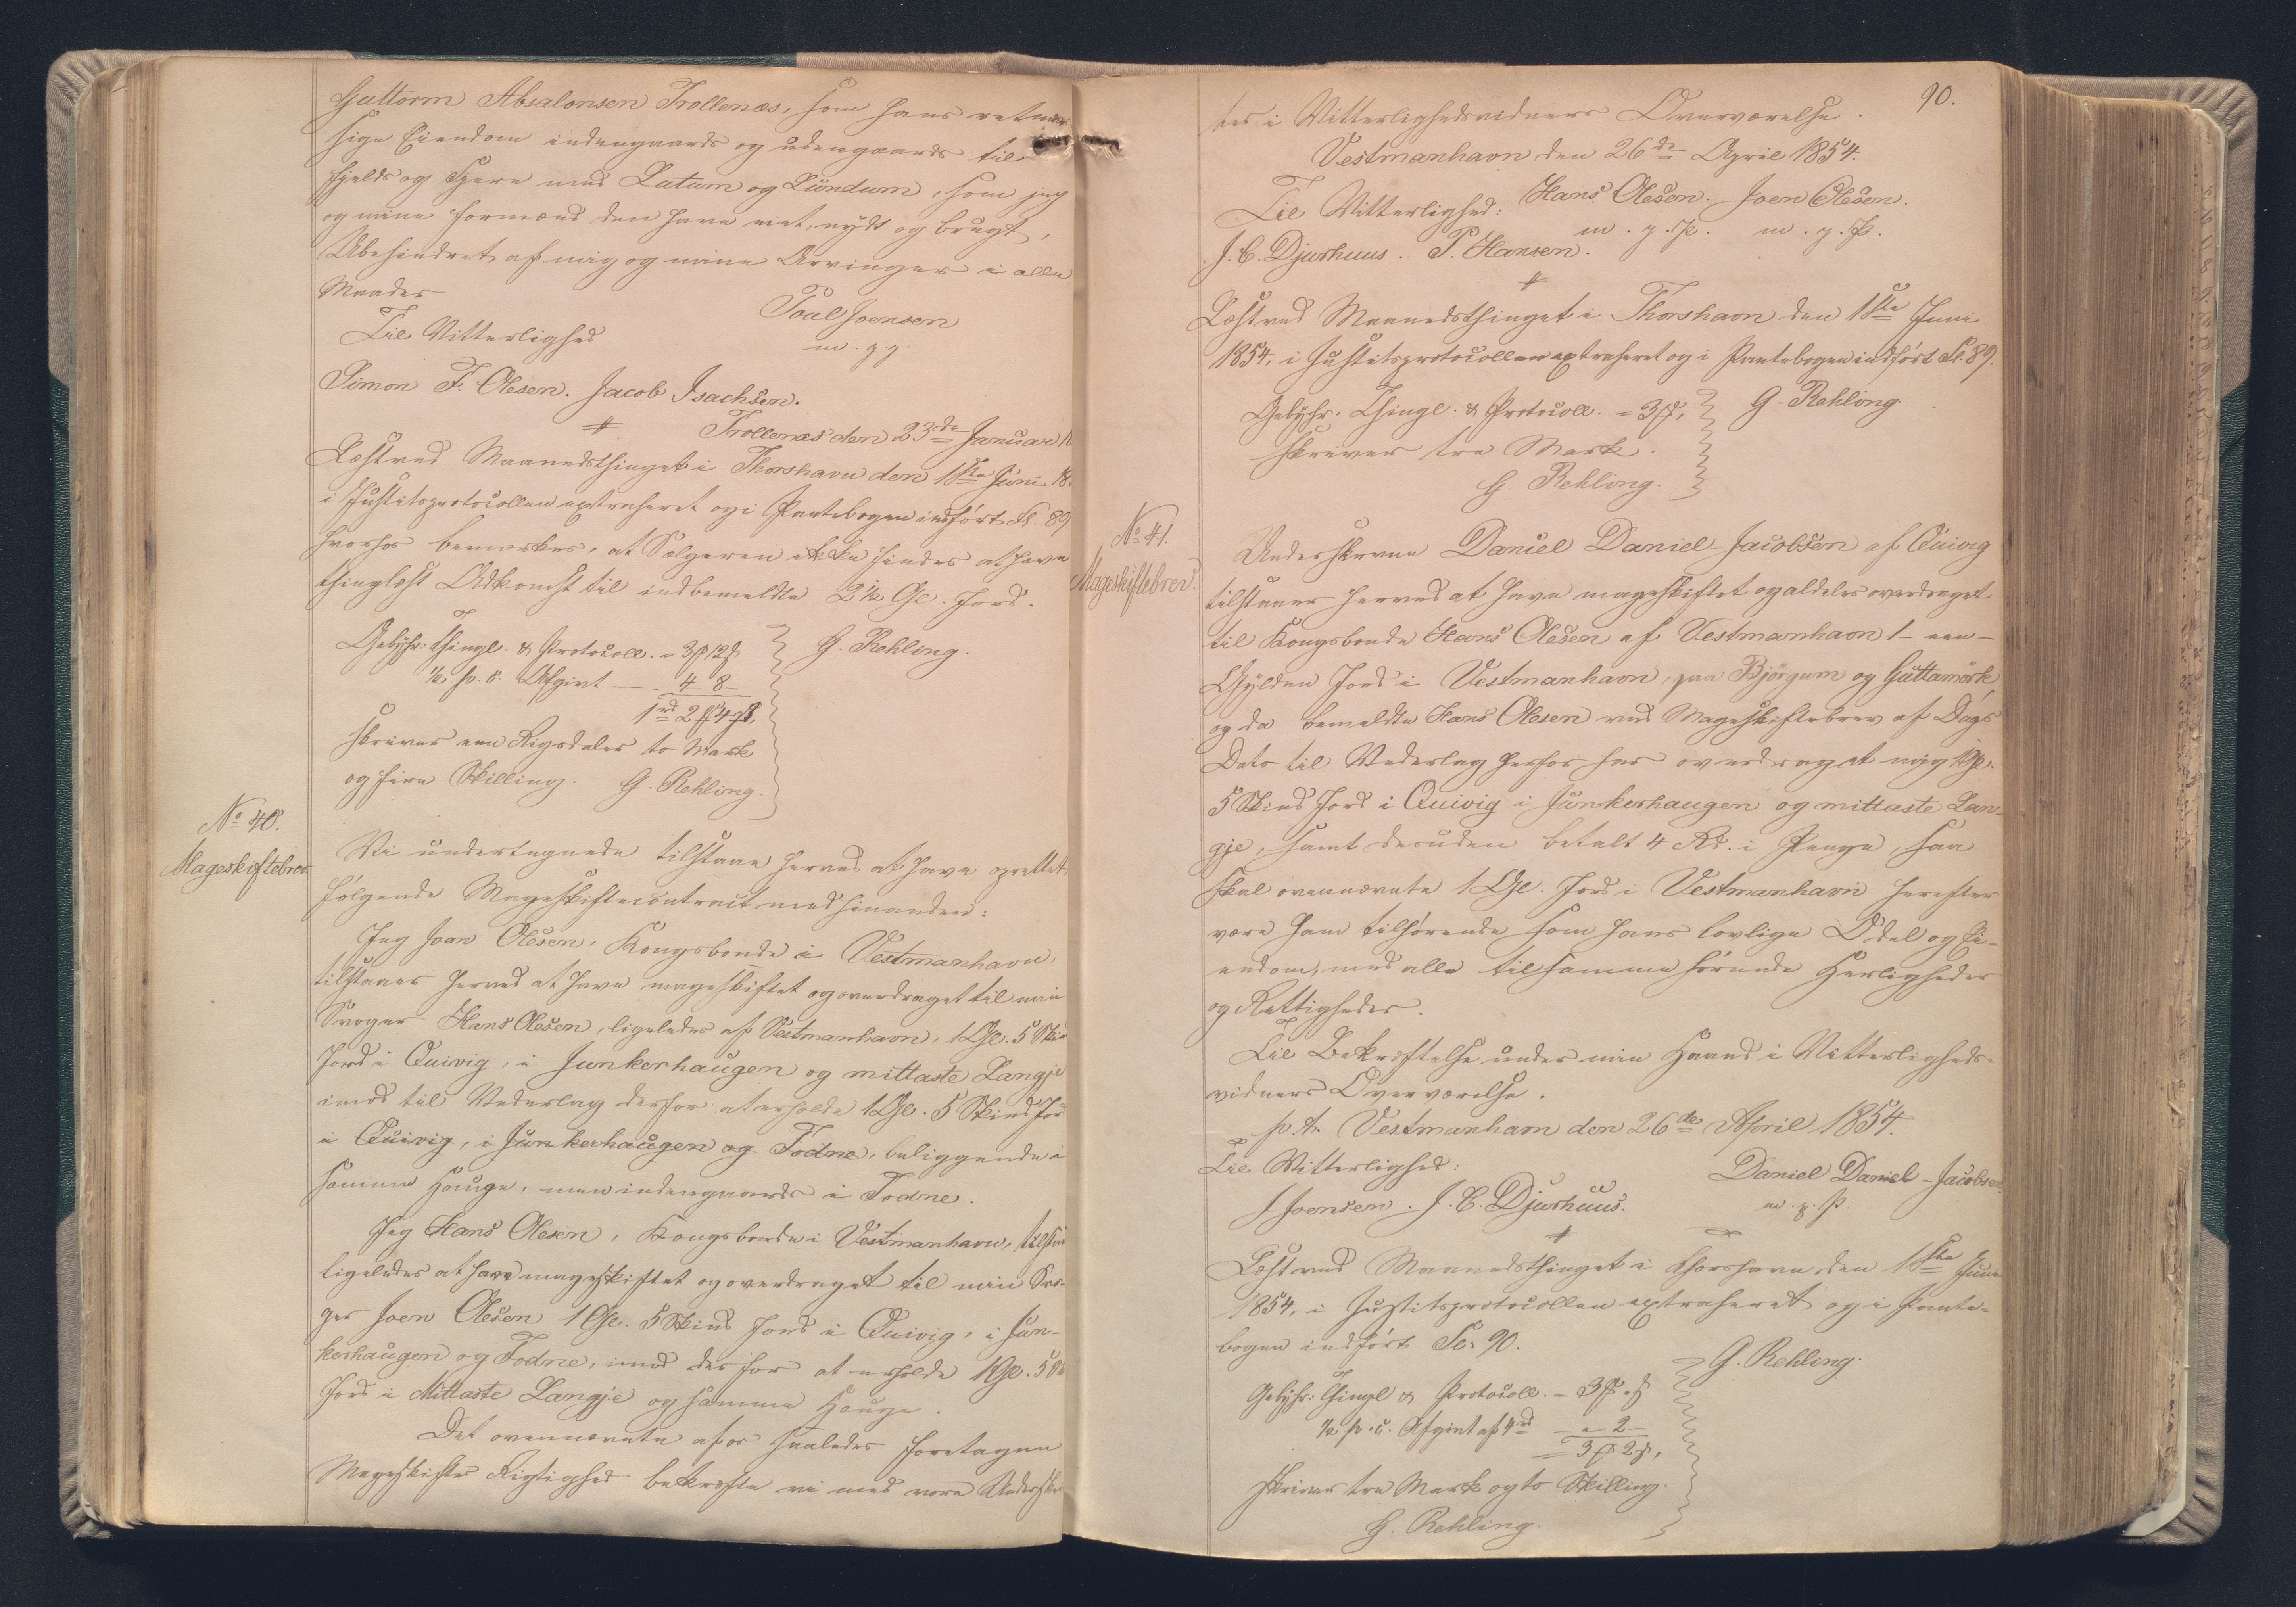 Guttorm Absalonsen Trollenæs, som hans retmæs
sige Eiendom indengaards og udengaards til
Fjelds og Fjære med Lutum og Lundum, som jeg
og mine Formænd den have eiet, nydt og brugt,
Ubehindret af mig og mine Arvinger i alle
Maader
Poul Joensen
Til Vitterlighed
m. p. p.
Simon F. Olesen. Jacob Isachsen.
Trollenæs den 23de Januar 18
Læst ved Maanedsthinget i Thorshavn den 1ste Juni 18
i Justitsprotocollen extraheret og i Pantebogen indført Fl. 89
hvorhos bemærkes, at Sælgeren ikke findes at have
thinglæst Adkomst til indbemeldte 2½ Gl. Jord.
Gebyhr: Thingl. & Protocoll. = 3 ₰ 12 ß
G. Rehling.
½ p. c. Afgivt — 4 8 -
1 rd 2 ₰ 4 ß,
skriver een Rigsdaler to Mark
og fire Skilling. G. Rehling.
No 40.
Mageskiftebrev.
Vi undertegnede tilstaae herved at have oprettet
følgende Mageskiftecontract med hinanden:
Jeg Joen Olesen, Kongsbonde i Vestmanhavn,
tilstaaer herved at have mageskiftet og overdraget til min
Svoger Hans Olesen, ligeledes af Vestmanhavn, 1 Gl. 5 Skin
Jord i Quivig, i Junkerhaugen og mittaste Langje
imod til Vederlag derfor at erholde 1 Gl. 5 Skind Jor
i Quivig, i Junkerhaugen og Todne, beliggende i
samme Hauge, men indengaards i Todne.
Jeg Hans Olesen, Kongsbonde i Vestmanhavn, tilstaa
ligeledes at have mageskiftet og overdraget til min Svo-
ger Joen Olesen 1 Gl. 5 Skind Jord i Quivig, i Jun-
kerhaugen og Todne, imod derfor at erholde 1 Gl. 5 Sk
Jord i Mittaste Langje og samme Hauge.
Det ovennævnte af os saaledes foretagne
Mageskiftes Rigtighed bekræfte vi med vore Underskri
90.
ter i Vitterlighedsvidners Overværelse.
Vestmanhavn den 26de April 1854.
Til Vitterlighed: Hans Olesen. Joen Olesen.
m. p. P. m. p. P.
J. C. Djurhuus. P. Hansen.
Læst ved Maanedsthinget i Thorshavn den 1ste Juni
1854, i Justitsprotocollen extraheret og i Pantebogen indført Fl. 89.
Gebyhr. Thingl. & Protocoll. = 3 ₰,
G. Rehling.
skriver tre Mark.
G. Rehling.
No 41.
Mageskiftebrev.
Underskrevne Daniel Daniel-Jacobsen af Quivig
tilstaaer herved at have mageskiftet og aldeles overdraget
til Kongsbonde Hans Olesen af Vestmanhavn 1 - een -
Gylden Jord i Vestmanhavn, paa Bjørgum og Guttamørk
og da bemeldte Hans Olesen ved Mageskiftebrev af Dags
Dato til Vederlag herfor har overdraget mig 1 Gl.
5 Skind Jord i Quivig i Junkerhaugen og mittaste Lan-
gje, samt desuden betalt 4 Rd. i Penge, saa
skal ovennævnte 1 Gl. Jord i Vestmanhavn herefter
være ham tilhørende som hans lovlige Odel og Ei-
endom, med alle tilsamme hørende Herligheder
og Rettigheder.
Til Bekræftelse under min Haand i Vitterligheds-
vidners Overværelse.
p. t. Vestmanhavn den 26de April 1854.
Til Vitterlighed:
Daniel Daniel-Jacobsen
J Joensen. J. C. Djurhuus.
m. p. P.
Læst ved Maanedsthinget i Thorshavn den 1ste Juni
1854, i Justitsprotocollen extraheret og i Pante-
bogen indført Fl. 90.
G. Rehling.
Gebyhr: Thingl & Protocoll. = 3 ₰ " ß
½ p. c. Afgivt af 4 rd - " 2 -
= 3 ₰ 2 ß,
skriver tre Mark og to Skilling.
G. Rehling.